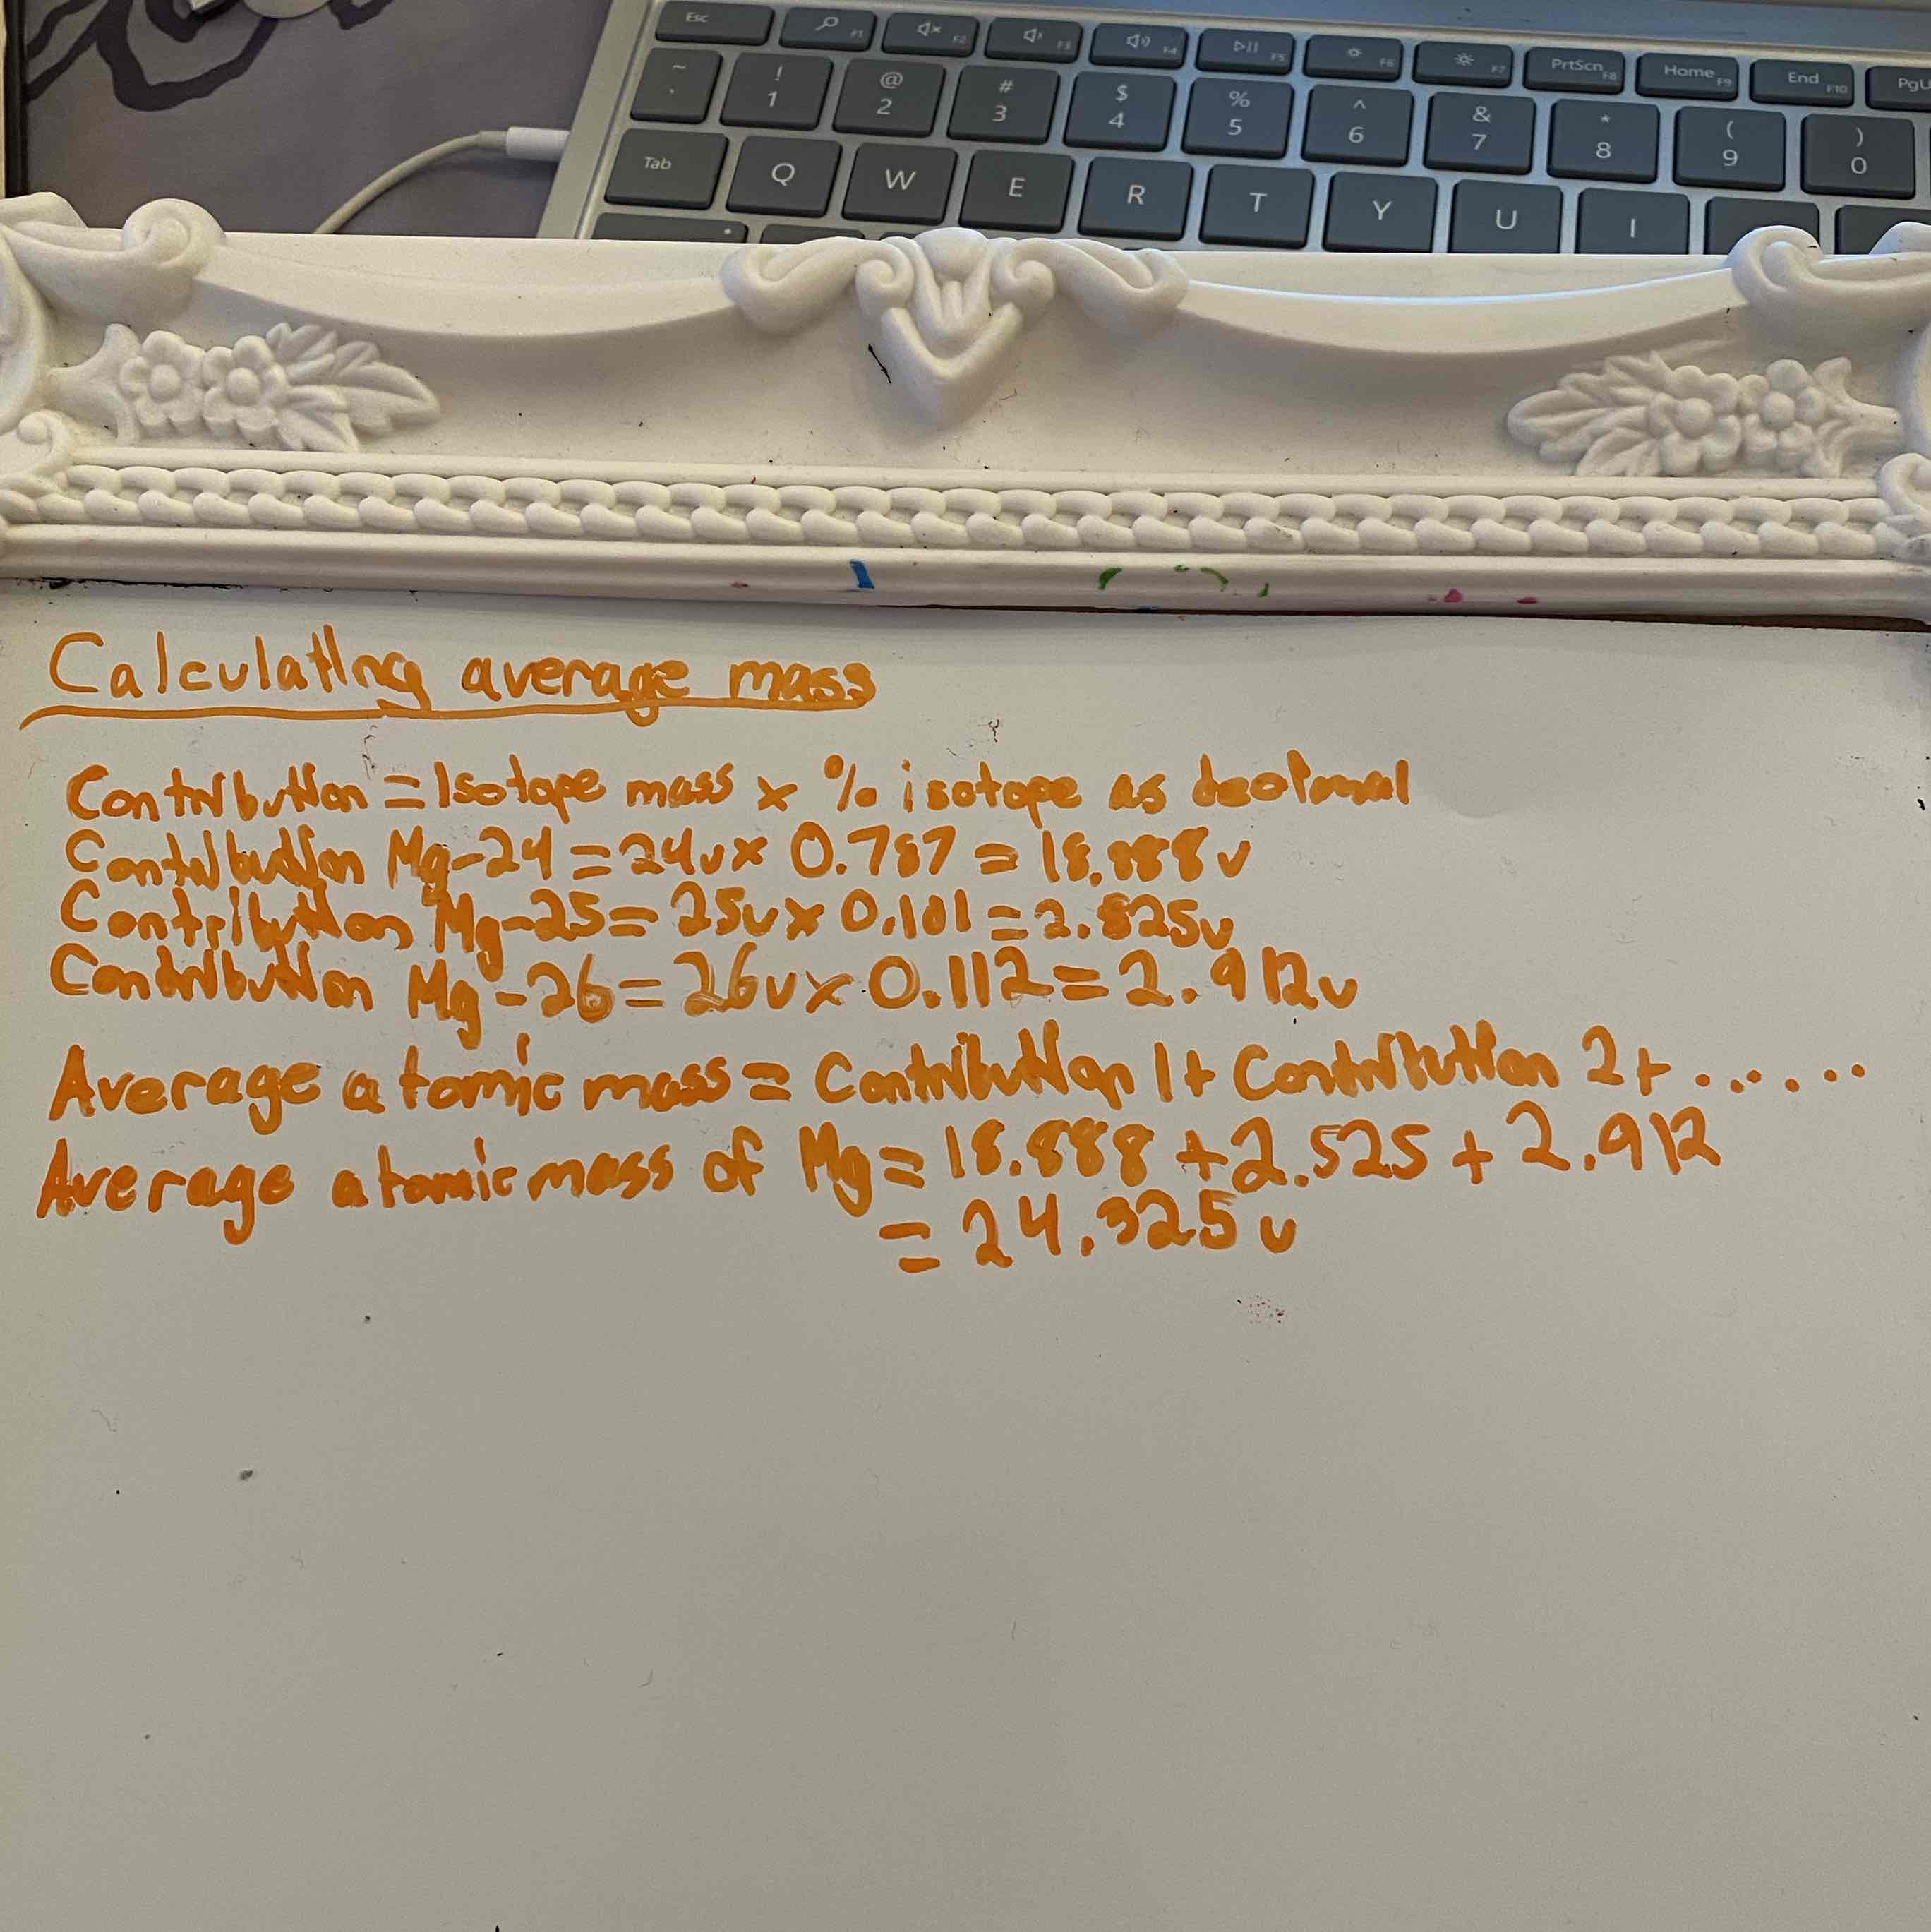 Esc F1 F2 F3 F4 F5 F6 F7 PrtScn F8 Home F9 End F10 PgU
~ ` ! 1 @ 2 # 3 $ 4 % 5 ^ 6 & 7 * 8 ( 9 ) 0
Tab Q W E R T Y U I
Calculating average mass
Contribution = Isotope mass x % isotope as decimal
Contribution Mg-24 = 24u x 0.787 = 18.888u
Contribution Mg-25 = 25u x 0.101 = 2.525u
Contribution Mg-26 = 26u x 0.112 = 2.912u
Average atomic mass = Contribution 1 + Contribution 2 + ......
Average atomic mass of Mg = 18.888 + 2.525 + 2.912
= 24.325 u